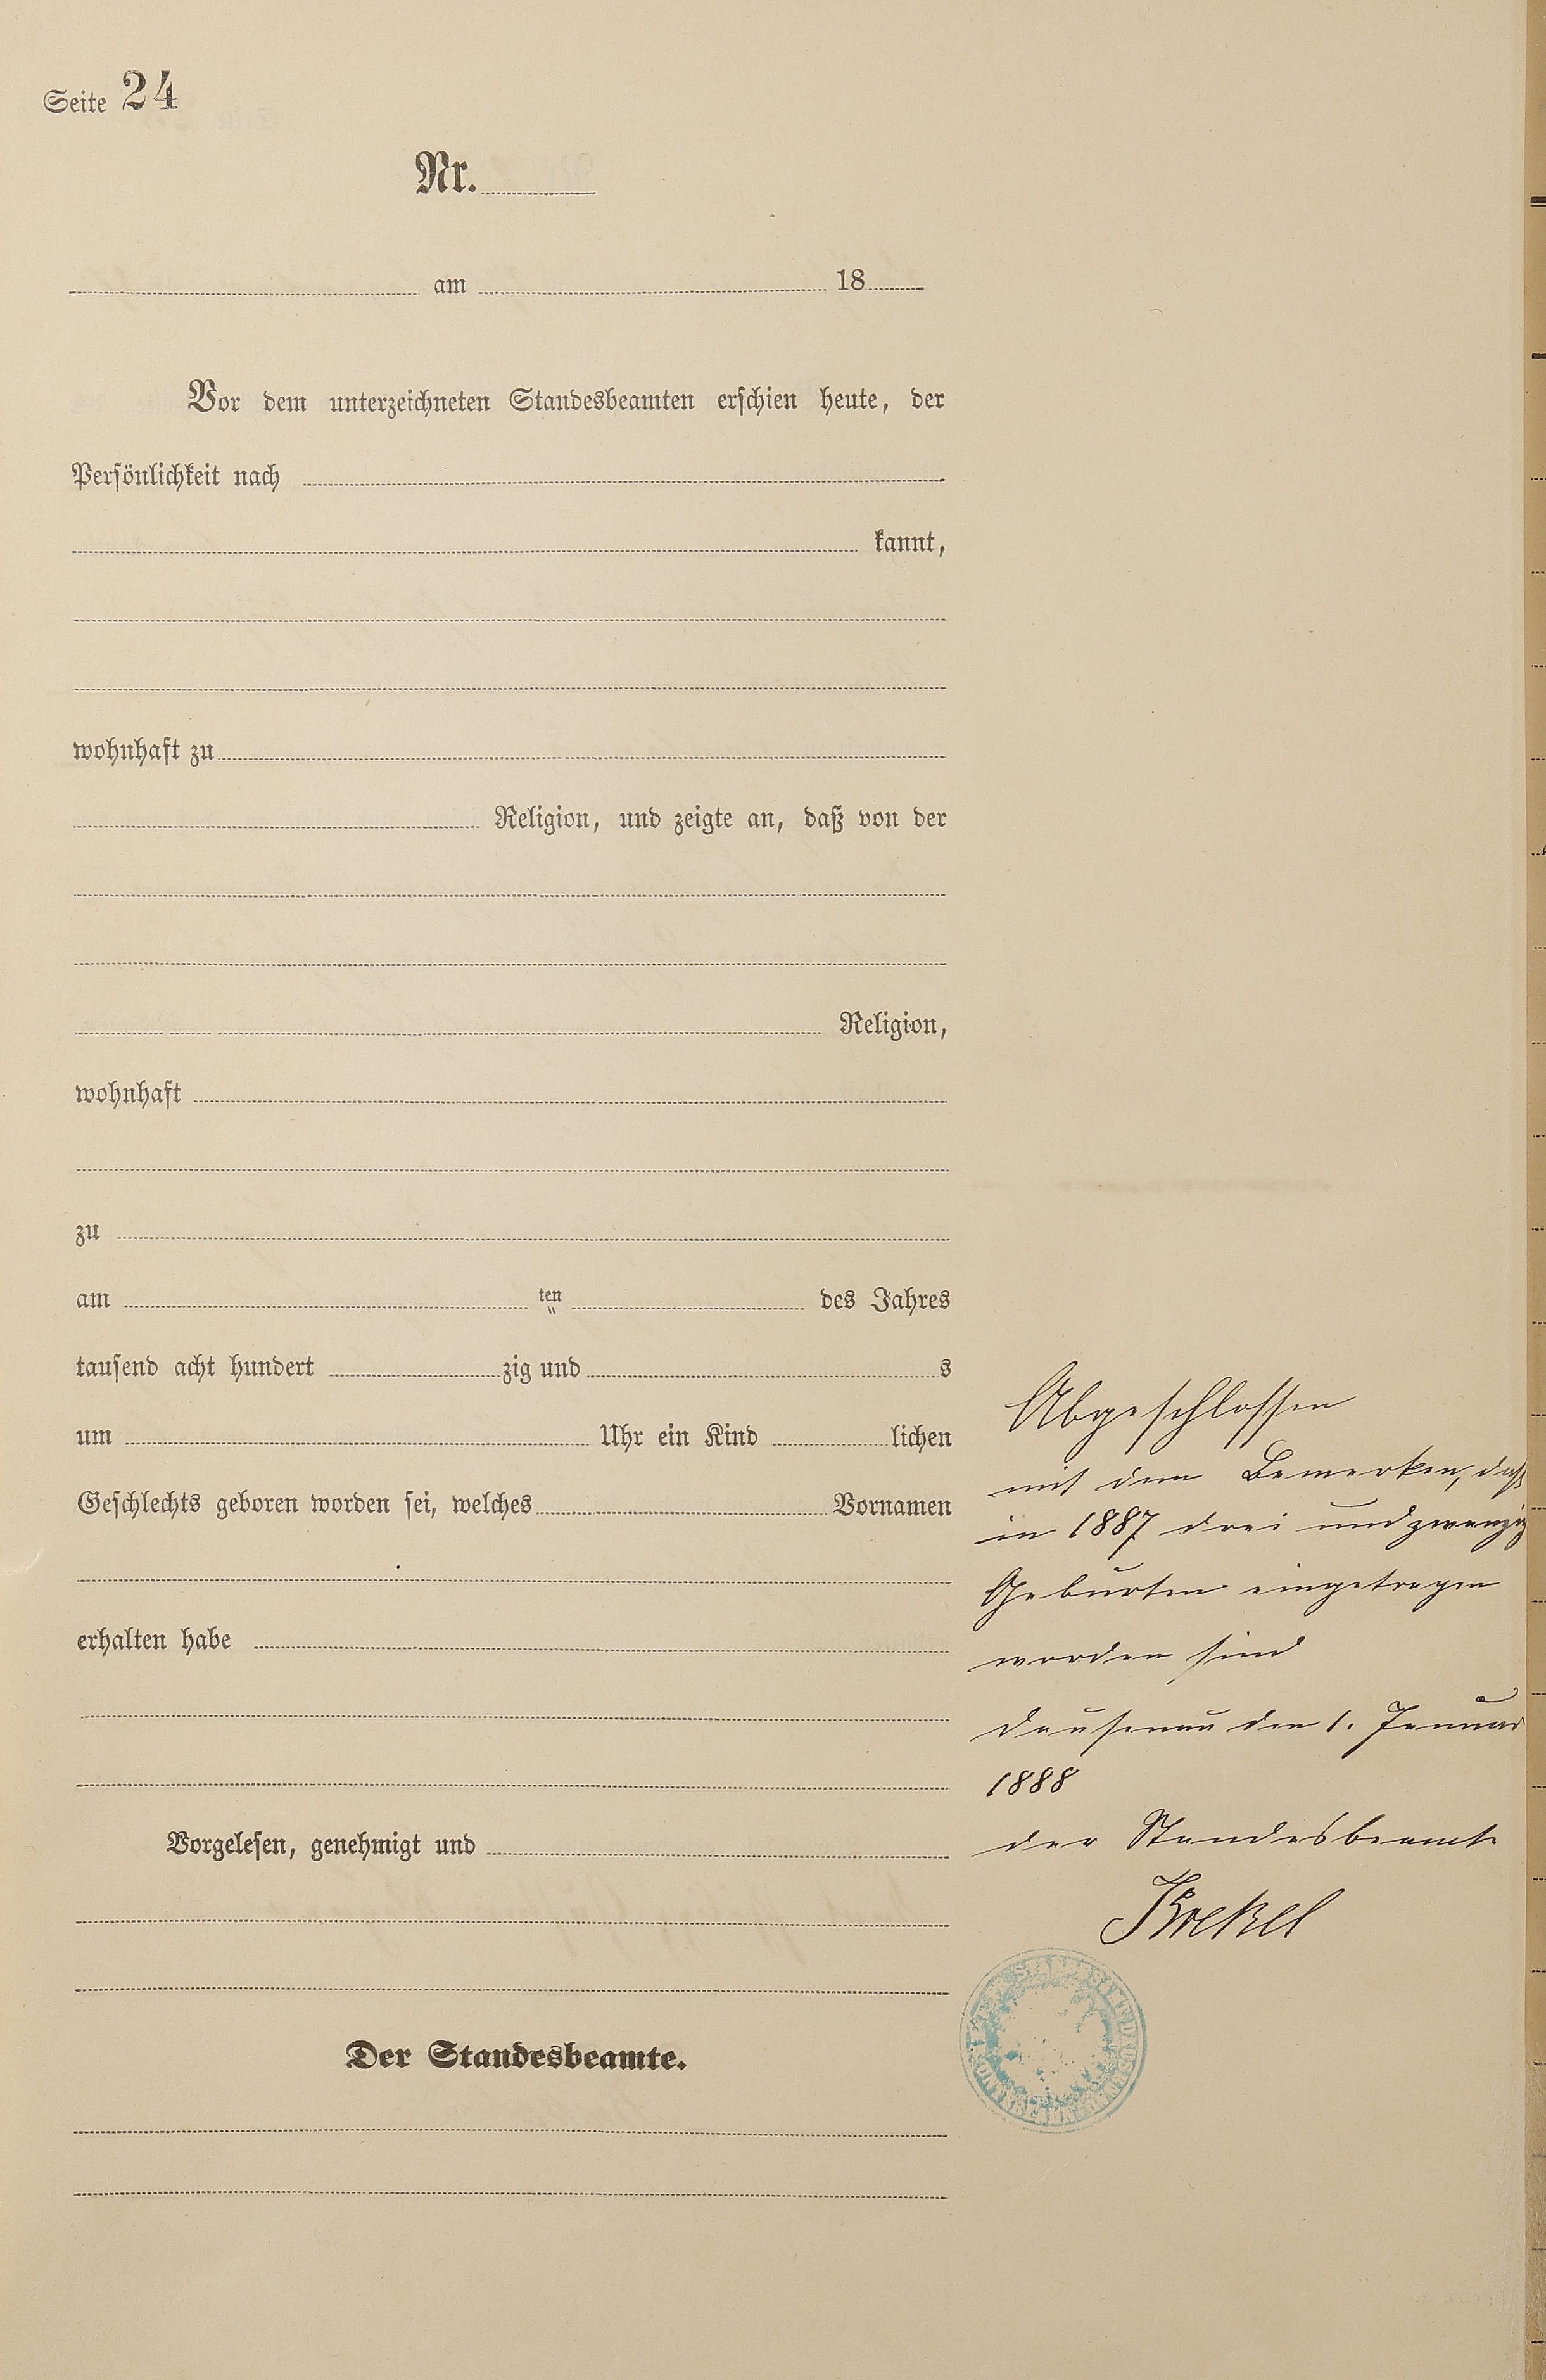 Seite 24
Nr.
am 18
Vor dem unterzeichneten Standesbeamten erschien heute, der
Persönlichkeit nach
kannt,
wohnhaft zu
Religion, und zeigte an, daß von der
Religion,
wohnhaft
zu
am ten des Jahres
tausend acht hundert zig und s
um Uhr ein Kind lichen
Geschlechts geboren worden sei, welches Vornamen
erhalten habe
Vorgelesen, genehmigt und
Der Standesbeamte.
Abgeschlossen
mit dem Bemerken, daß
in 1887 drei und zwanzig
Geburten eingetragen
worden sind
Dausenau den 1. Januar
1888
der Standesbeamte